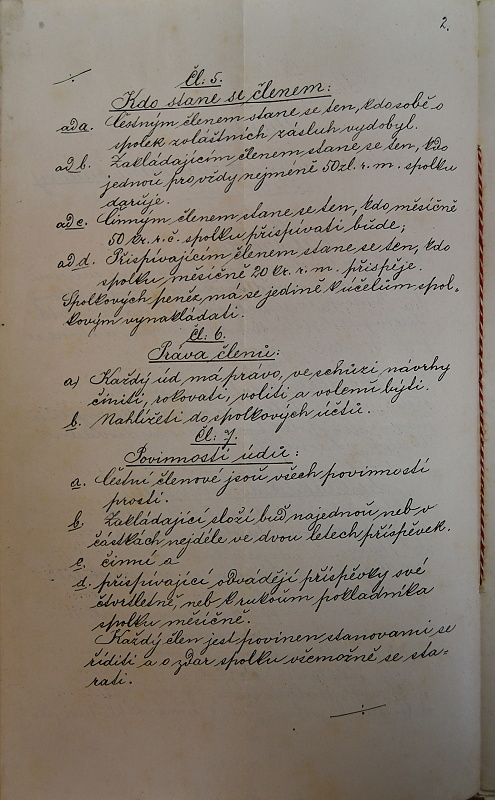 2.
Čl: 5.
Kdo stane se členem:
ad a. Čestným členem stane se ten, kdo sobě o
spolek zvláštních zásluh vydobyl.
ad b. Zakládajícím členem stane se ten, kdo
jednou pro vždy nejméně 50 zl. r. m. spolku
daruje.
ad c. Činným členem stane se ten, kdo měsíčně
50 kr. r. č. spolku přispívati bude;
ad d. Přispívajícím členem stane se ten, kdo
spolku měsíčně 20 kr. r. m. přispěje.
Spolkových peněz má se jedině k účelům spol-
kovým vynakládati.
Čl: 6.
Práva členů:
a) Každý úd má právo, ve schůzi návrhy
činiti, rokovati, voliti a volenu býti.
b. Nahlížeti do spolkových účtů.
Čl: 7.
Povinnosti údů:
a. Čestní členové jsou všech povinností
prosti.
b. Zakládající složí buď najednou neb v
částkách nejdéle ve dvou letech příspěvek.
c. činní a
d. přispívající odvádějí příspěvky své
čtvrtletně, neb k rukoum pokladníka
spolku měsíčně.
Každý člen jest povinen stanovami se
říditi a o zdar spolku všemožně se sta-
rati.